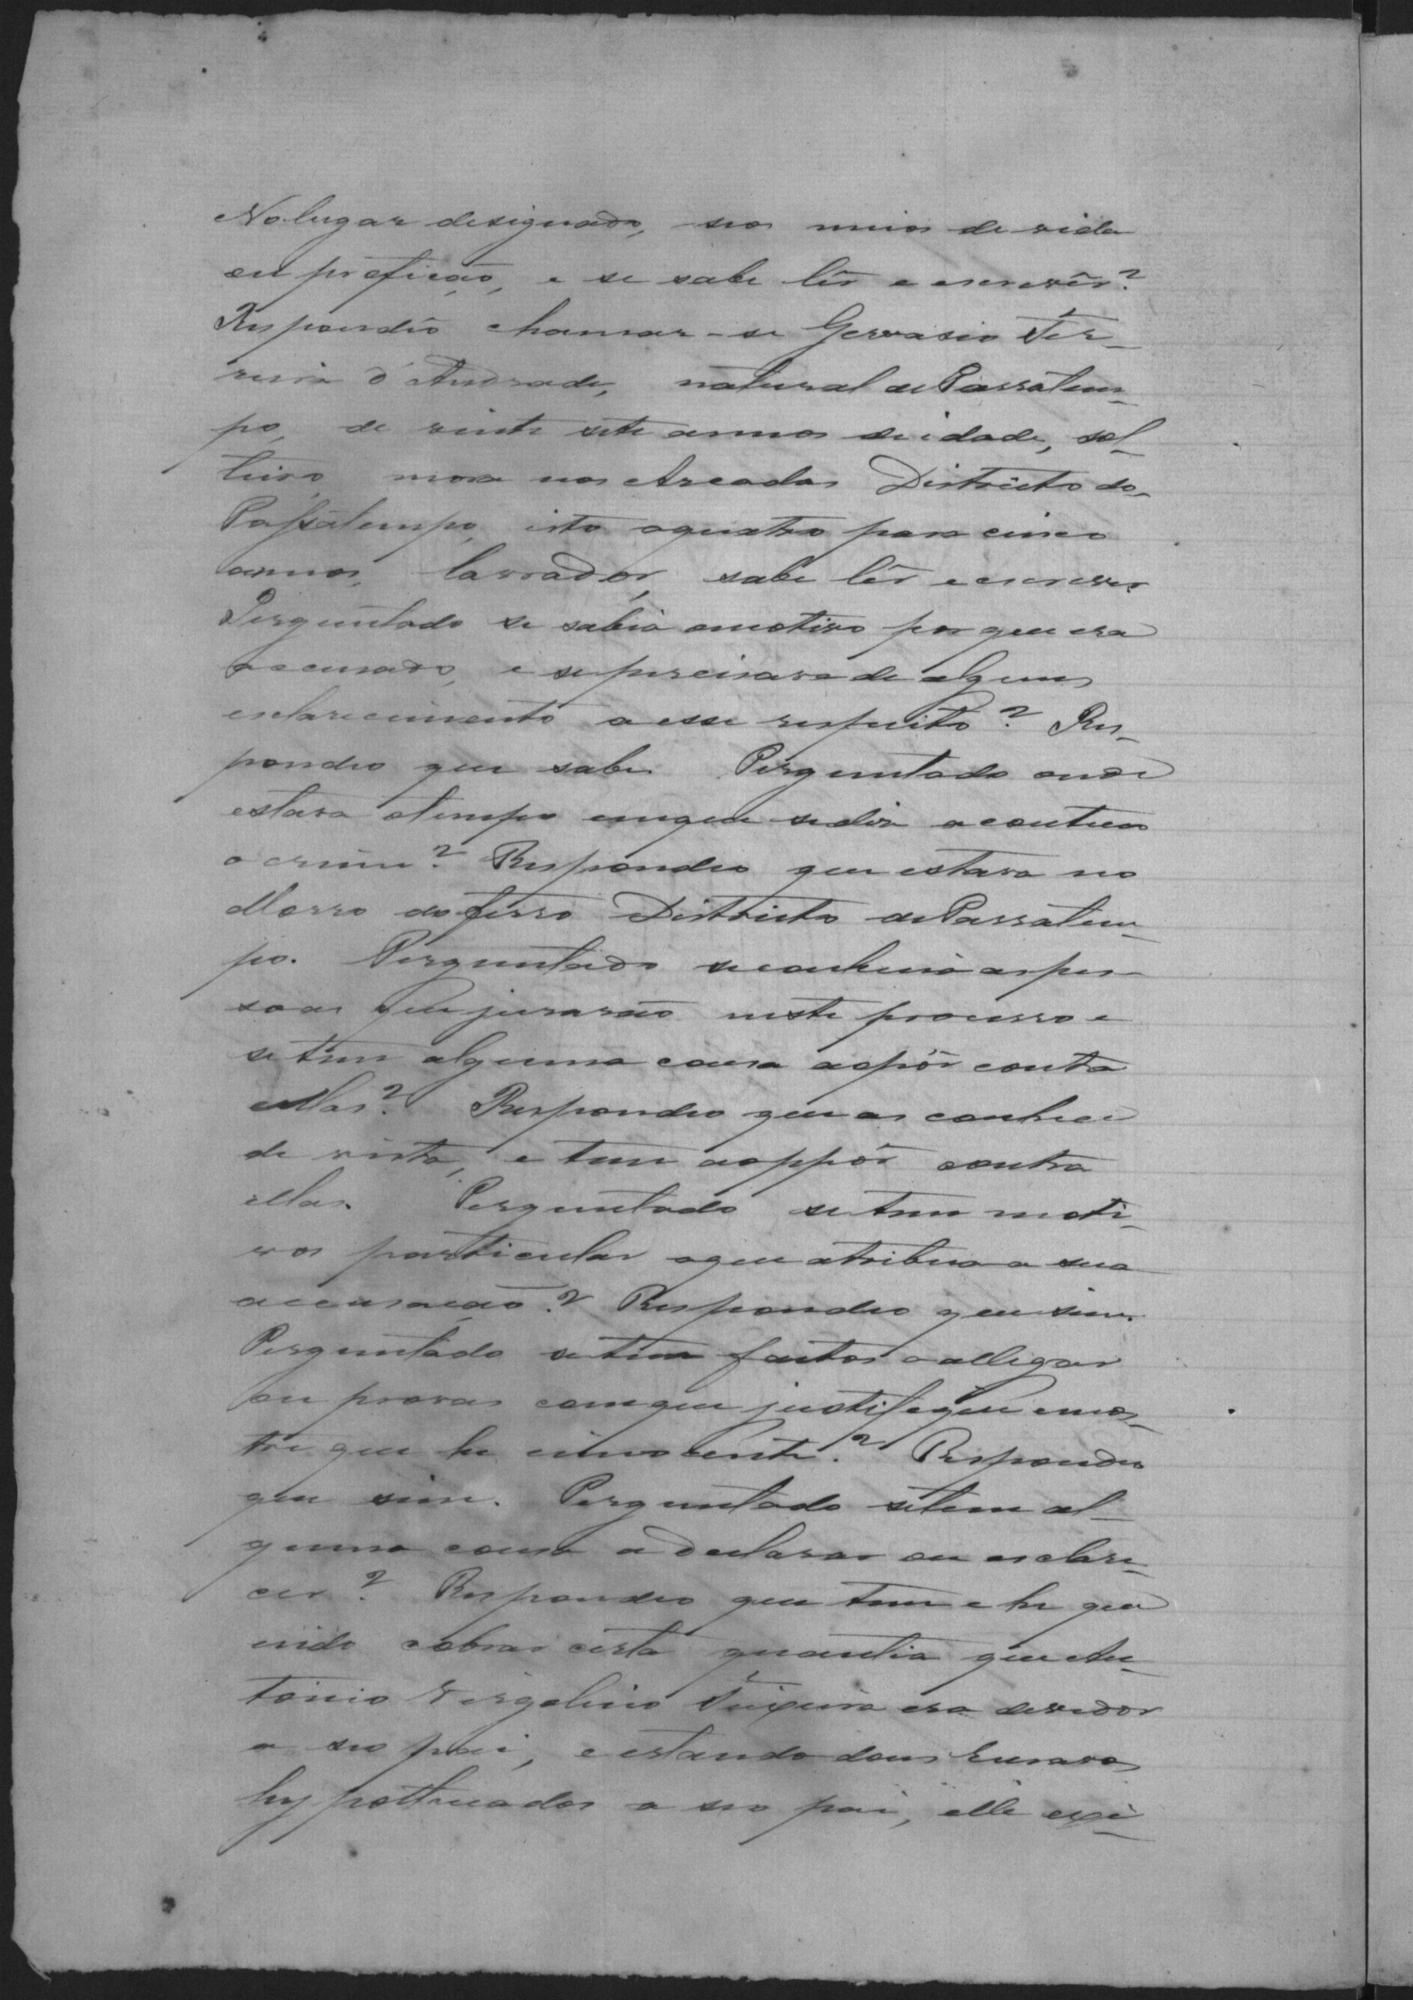 No lugar designado, seos meios de vida
ou profição, e se sabe lêr e escrevêr?
Respondeo chamar-se Gervasio Fer-
reira d'Andrade, natural de Passatem-
po, de vinte sete annos de idade, sol-
teiro, mora nos Arcadas Districto do
Passatempo, isto a quatro para cinco
annos, lavrador, sabe lêr e escrever.
Perguntado se sabia o motivo por que era
accusado, e se precisava de algum
esclarecimento a esse respeito? Res-
pondeo que sabe. Perguntado onde
estava o tempo em que se diz aconteceo
o crime? Respondeo que estava no
Morro do ferro Districto de Passatem-
po. Perguntado se conhecia as pes-
soas que jurarão neste processo e
se tem alguma cousa a opôr contra
ellas? Respondeo que as conhece
de vista, e tem a oppôr contra
ellas. Perguntado se tem moti-
vos particular a que atribua a sua
accusação? Respondeo que sim.
Perguntado se tem factos a allegar
ou provas com que justifique e mos-
tre que he innocente? Respondeo
que sim. Perguntado se tem al-
guma cousa a declarar ou esclare-
cer? Respondeo que tem e he que
indo cobrar certa quantia que An-
tonio Virgolino Teixeira era devedor
a seo pai, e estando dous escravos
hypothecados a seo pai, elle exi-